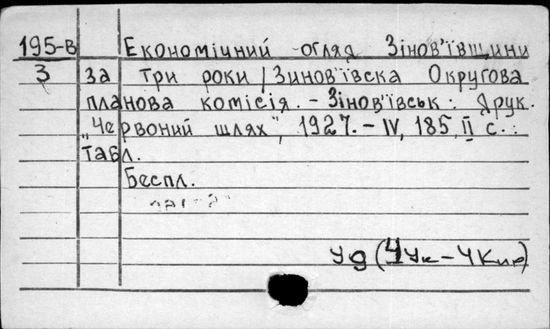 195-В Економічний огляд Зінов'ївщини
3 за три роки / Зинов'ївска Округова
планова комісія. – Зінов'ївськ: Друк.
"Червоний шлях", 1927. – IV, 185, II с.:
табл.
Беспл.
У9(4Ук – 4Кир)